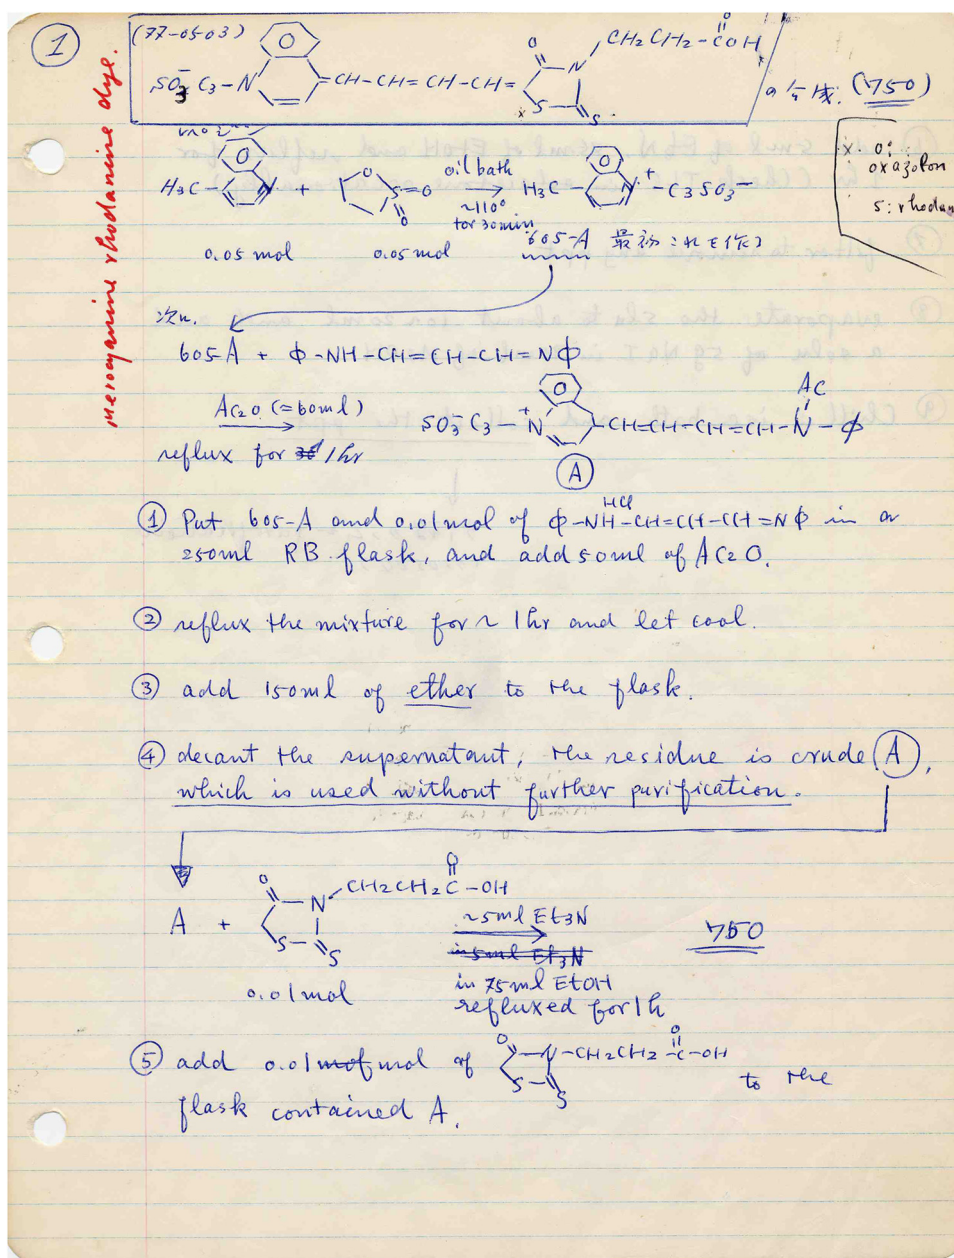 ①
merocyanine rhodanine dye.
(77-05-03)
SO3⁻ C3-N =CH-CH=CH-CH= O N S S CH2CH2-COH O
の合成. (750)
x O:
oxazolon
S: rhodan
H3C- N + O S=O O oil bath ~110° for 30min → H3C- N⁺ -C3SO3⁻
0.05 mol 0.05 mol 605-A 最初これを作る
次に.
605-A + Φ-NH-CH=CH-CH=NΦ
Ac2O (=60ml)
SO3⁻ C3-N⁺ -CH=CH-CH=CH-N-Φ AC
reflux for 1hr
Ⓐ
① Put 605-A and 0.01mol of Φ-NH-CH=CH-CH=NΦ HCl in a
250ml RB flask, and add 50ml of Ac2O.
② reflux the mixture for ~ 1hr and let cool.
③ add 150ml of ether to the flask.
④ decant the supernatant, the residue is crude Ⓐ,
which is used without further purification.
A + O N S S -CH2CH2C-OH O
~5ml Et3N
in 5ml Et3N
750
in 75ml EtOH
0.01mol
refluxed for 1h
⑤ add 0.01 mol of O N S S -CH2CH2-C-OH O to the
flask contained A.